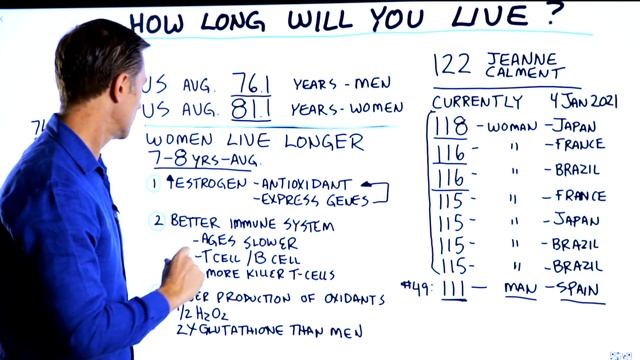 HOW LONG WILL YOU LIVE?
US AVG. 76.1 YEARS-MEN
US AVG. 81.1 YEARS-WOMEN
WOMEN LIVE LONGER
7-8 YRS-AVG.
1 ↑ESTROGEN - ANTIOXIDANT
- EXPRESS GENES
2 BETTER IMMUNE SYSTEM
- AGES SLOWER
- T CELL / B CELL
MORE KILLER T-CELLS
PRODUCTION OF OXIDANTS
1/2 H2O2
2X GLUTATHIONE THAN MEN
122 JEANNE CALMENT
CURRENTLY 4 JAN 2021
118 - WOMAN - JAPAN
116 - " - FRANCE
116 - " - BRAZIL
115 - " - FRANCE
115 - " - JAPAN
115 - " - BRAZIL
115 - " - BRAZIL
#49: 111 - MAN - SPAIN